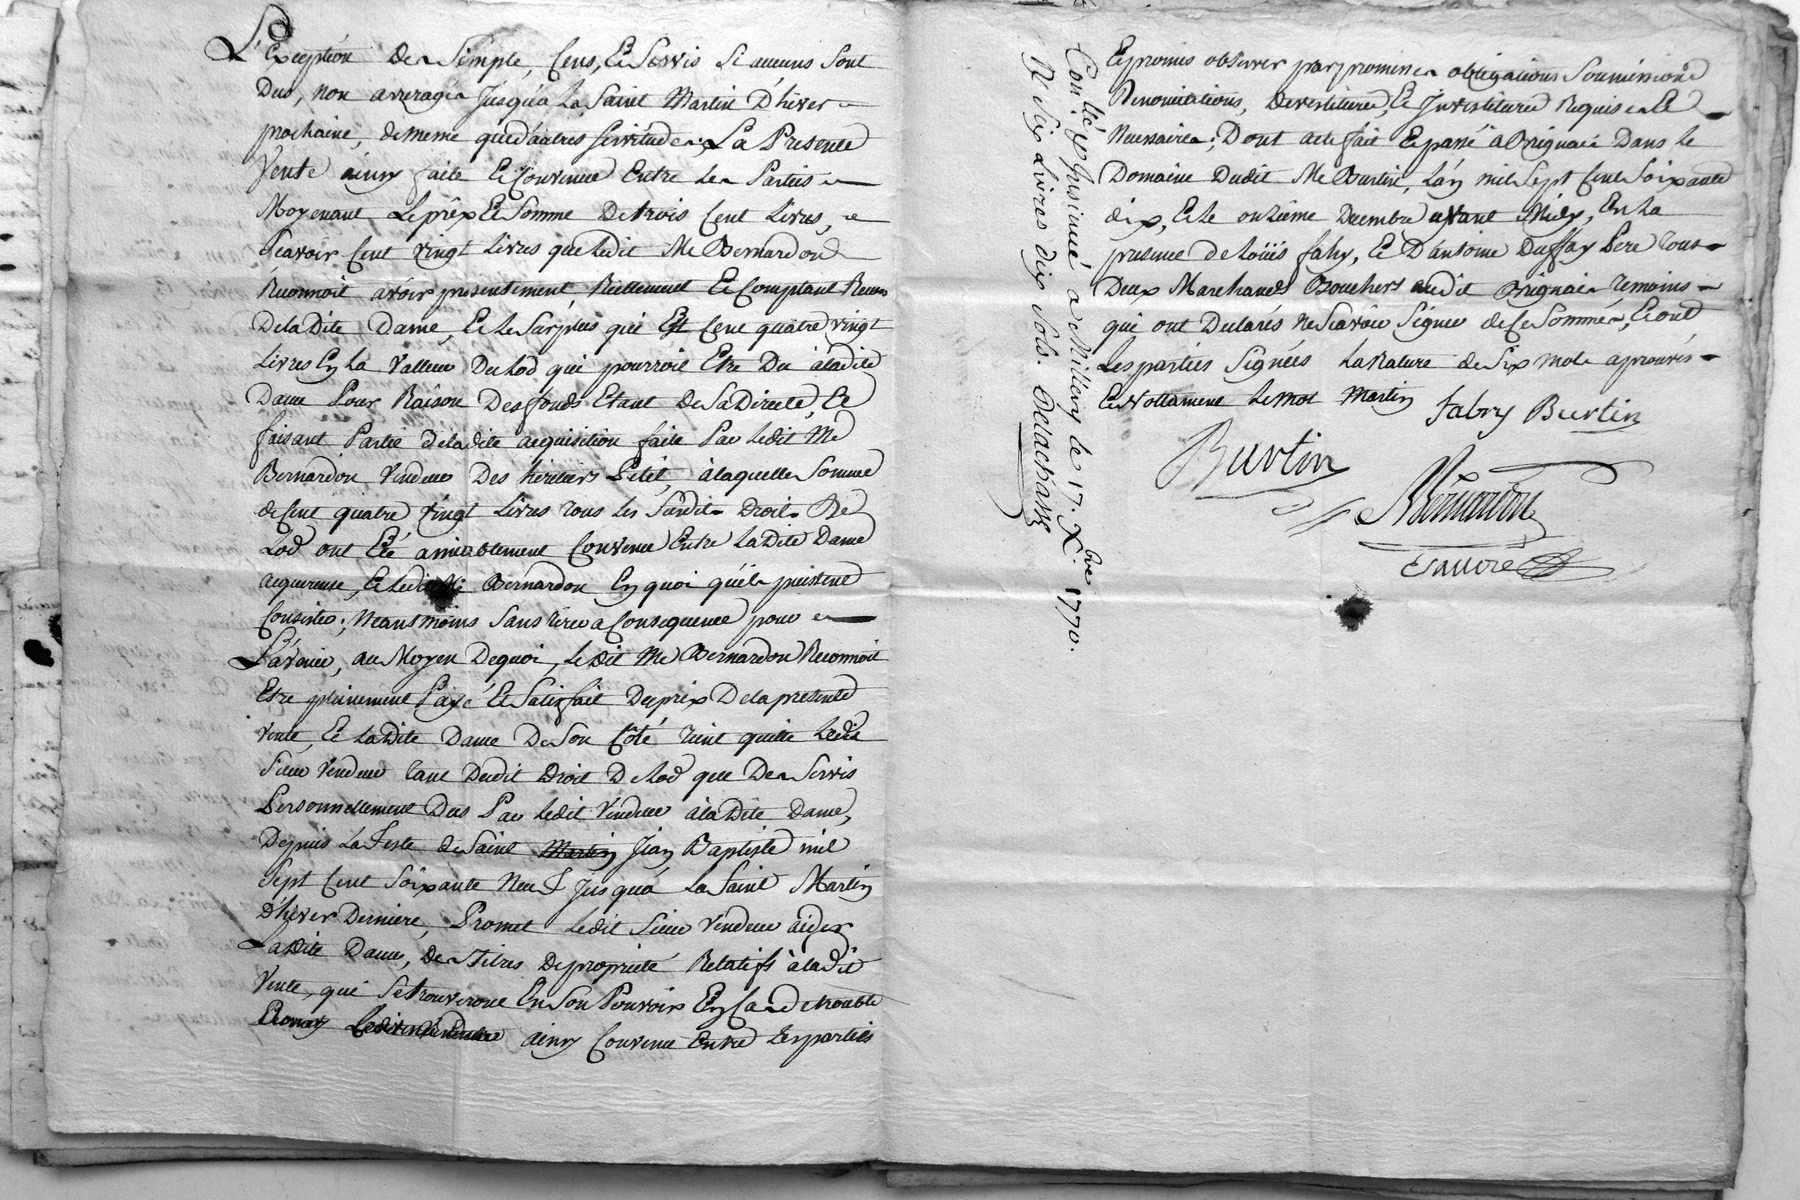 L'Exception de Simple, Cens, Et Servis Si aucuns Sont
Dus, non arreragés Jusqu'a La Saint Martin D'hiver
prochaine, de meme que d'autres Servitudes, La Presente
Vente ainsy faite Et Convenue Entre Les Parties
Moyenant Le prix Et Somme De trois Cent Livres,
Scavoir Cent vingt Livres que Ledit Me Bernardon
Reconnoit avoir presentement, Reellement Et Comptant Receu
De la Dite Dame, Et Le Surplus qui Est Cent quatre vingt
Livres En La Valleur Du Lod qui pourroit Etre Du a la dite
Dame Pour Raison Des fonds Etant de Sa Directe, Et
faisant Partie de la dite acquisition faite Par Ledit Me
Bernardon Vendeur Des heritiers Petit, a laquelle Somme
de Cent quatre vingt Livres tous Les Susdits Droits De
Lod ont Eté amiablement Convenu Entre La Dite Dame
acquereuse, Et Ledit Me Bernardon En quoi qu'ils puissent
Consister; Neantmoins Sans tirer a Consequence pour
L'avenir, au Moyen Dequoi, Le dit Me Bernardon Reconnoit
Etre pleinement Payé Et Satisfait Du prix De la presente
vente, Et La Dite Dame De Son Côté tient quitte Ledit
Sieur Vendeur tant Dudit Droit De Lod que De Servis
Personnellement Dus Par Ledit Vendeur a la Dite Dame,
Depuis La feste de Saint Martin Jean Baptiste mil
Sept Cent Soixante Neuf Jusqu'à La Saint Martin
D'hiver Derniere, Promet Ledit Sieur Vendeur aider
La dite Dame, Des Titres De propriété Relatifs à la dit
Vente, qui Se trouveront En Son Pouvoir En Cas de trouble
Promet Ledit ainsy Convenu Entre Les parties
Et promis observer par promesses obligations Soumissions
Renonciations, Devestitures, Et Investitures Requises Et
Necessaires; Dont acte fait Et passé a Brignais Dans le
Domaine Dudit Me Burtin, L'an mil Sept Cent Soixante
dix, Et Le onzieme Decembre avant Midy, En La
presence de Loüis fahy, Et D'antoine Duffay Pere tous
Deux Marchands Bouchers audit Brignais temoins
qui ont Declarés ne Scavoir Signer de Ce Sommés, Et ont
Les parties Signées La Rature de Six mots aprouvés
Et Nottament Le mot Martin Fabry Burtin
Burtin
Bernardon
Con.lé & Insinué a Millery le 17. Xbre 1770.
R Six Livres dix Sols. Delachasse